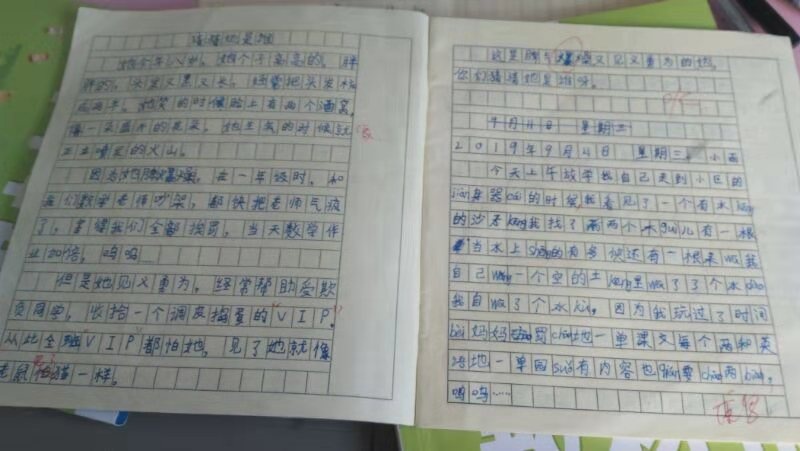 猜猜她是谁
她今年八岁，她个子高高的，胖
胖的，头发又黑又长，经常把头发梳
成两半，她笑的时候脸上有两个酒窝，
像一朵盛开的花朵，她生气的时候就
正在喷发的火山。
因为她脾气爆燥，在一年级时，和
我们数学老师吵架，都快把老师气疯
了，害得我们全部挨罚，当天数学作
业加倍，呜呜…
但是她见义勇为，经常帮助受欺
负同学，收拾一个调皮捣蛋的VIP。
从此全班VIP都怕她，见了她就像
老鼠猫一样。
这是脾气爆燥又见义勇为的她，
你们猜猜她是谁呀。
9月4日 星期三
2019年9月4日 星期三 小雨
今天上午放学我自己走到小区的
器cái的时候我看见了一个有水
的沙子我找了两个水儿有一根
当水上的有多快还有一根来wā我
自己一个空的土里wā了3个水
我自wā了个水，因为我玩过了时间
bèi妈妈罚地一单课文每个两和英
语地一单园suǒ有内容也要两biàn，
呜呜……